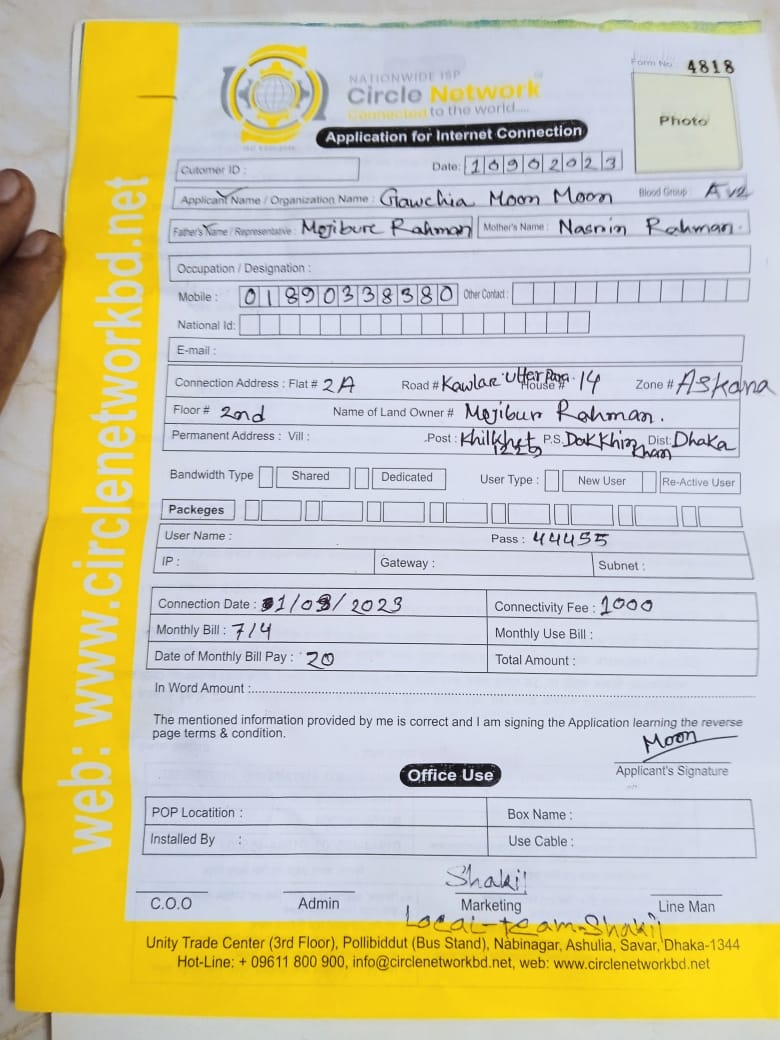 NATIONWIDE ISP
Circle Network
Connected to the world....
Form No: 4818
Photo
Application for Internet Connection
Cutomer ID :
Date: 10902023
Applicant Name / Organization Name : Gawchia Moon Moon Blood Group :
Father's Name / Representative : Mojibure Rahman Mother's Name : Nasrin Rahman.
Occupation / Designation :
Mobile : 01890338380 Other Contact :
National Id:
E-mail :
Connection Address : Flat # 2A Road # Kawlar Utter Para House # 14 Zone # Askona
Floor # 2nd Name of Land Owner # Mojibur Rahman.
Permanent Address : Vill : Post : Khilkhet 1229 P.S. Dakkhin Khan Dist: Dhaka
Bandwidth Type Shared Dedicated User Type : New User Re-Active User
Packeges
User Name : Pass : 44455
IP : Gateway : Subnet :
Connection Date : 1/09/2023 Connectivity Fee : 1000
Monthly Bill : 714 Monthly Use Bill :
Date of Monthly Bill Pay : 20 Total Amount :
In Word Amount :
The mentioned information provided by me is correct and I am signing the Application learning the reverse
page terms & condition.
Moon
Applicant's Signature
Office Use
POP Locatition : Box Name :
Installed By : Use Cable :
Shakil
C.O.O Admin Marketing Line Man
Local-team-Shakil
Unity Trade Center (3rd Floor), Pollibiddut (Bus Stand), Nabinagar, Ashulia, Savar, Dhaka-1344
Hot-Line: + 09611 800 900, info@circlenetworkbd.net, web: www.circlenetworkbd.net
web: www.circlenetworkbd.net